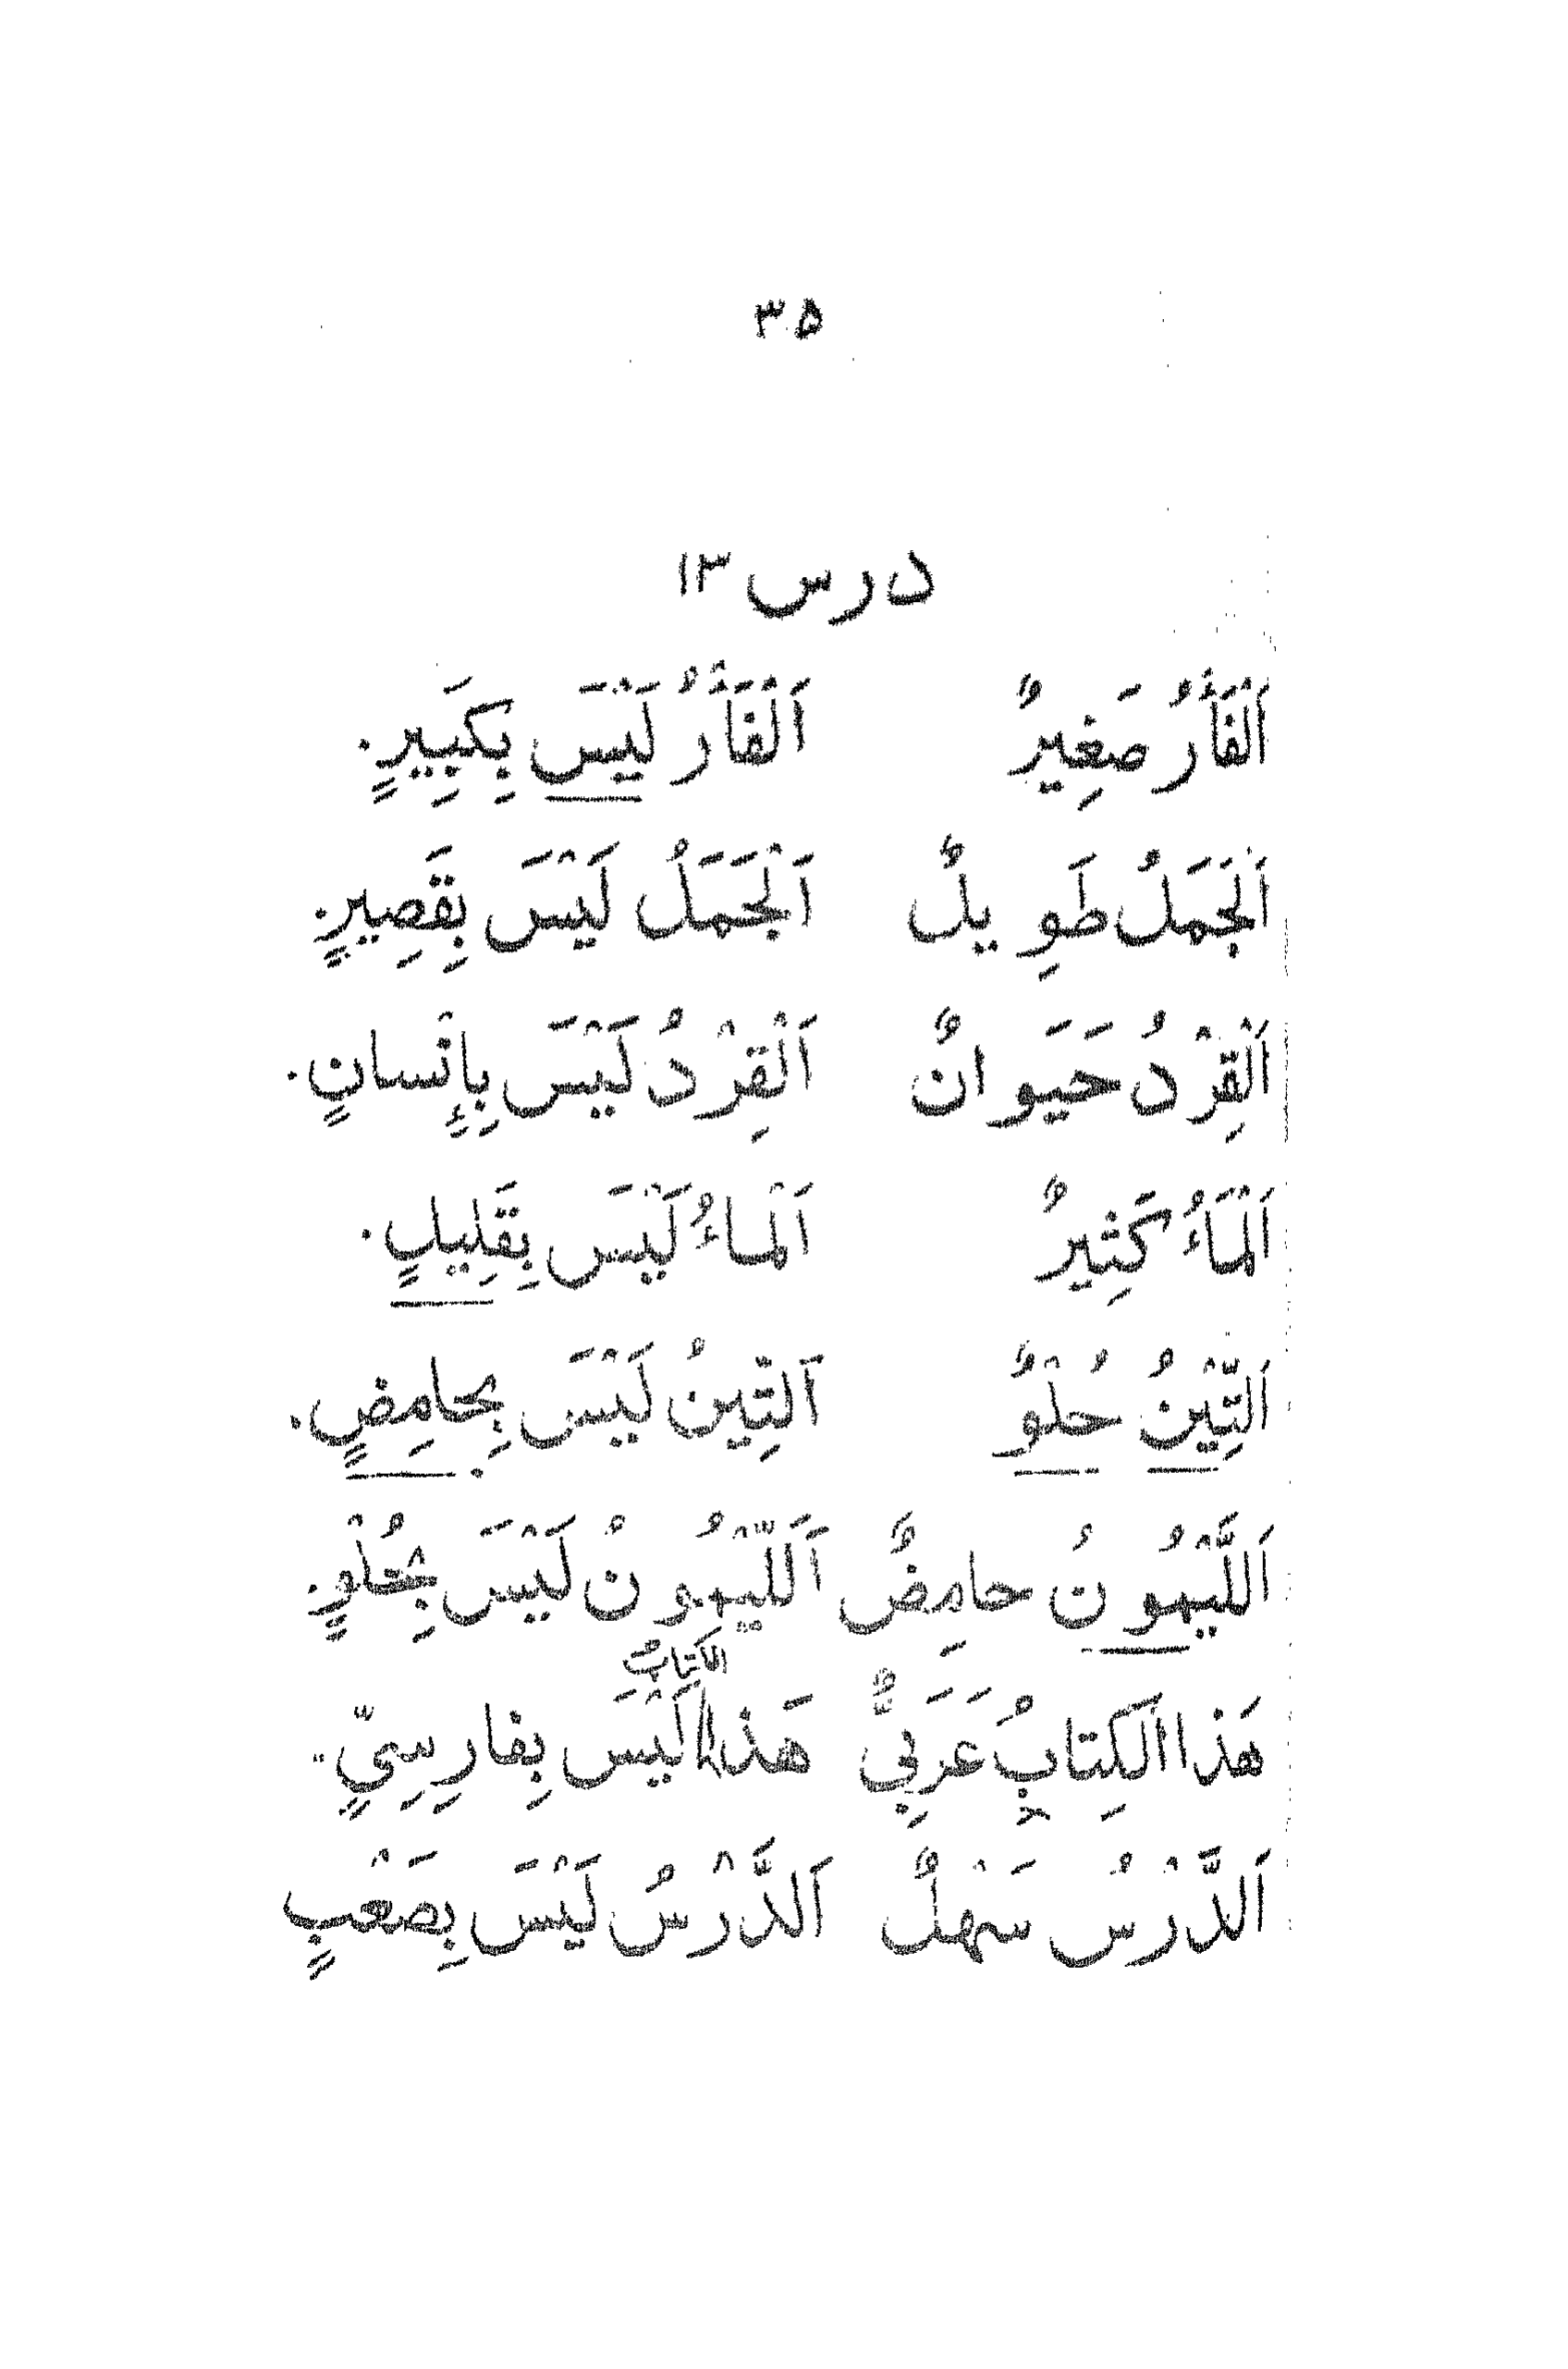 ۳۵
درس ۱۳
اَلْفَأْرُ صَغِيرٌ اَلْفَأْرُ لَيْسَ بِكَبِيرٍ.
اَلْجَمَلُ طَوِيلٌ اَلْجَمَلُ لَيْسَ بِقَصِيرٍ.
اَلْقِرْدُ حَيَوانٌ اَلْقِرْدُ لَيْسَ بِإِنْسانٍ.
اَلْمَاءُ كَثِيرٌ اَلْماءُ لَيْسَ بِقَلِيلٍ.
اَلتِّيْنُ حُلْوٌ اَلتِّينُ لَيْسَ بِحامِضٍ.
اَللَّيْمُونُ حامِضٌ اَللَّيْمُونُ لَيْسَ بِحُلْوٍ.
الكِتابُ
هَذا الْكِتابُ عَرَبِيٌّ هَذا لَيْسَ بِفارِسِيٍّ.
اَلدَّرْسُ سَهْلٌ اَلدَّرْسُ لَيْسَ بِصَعْبٍ